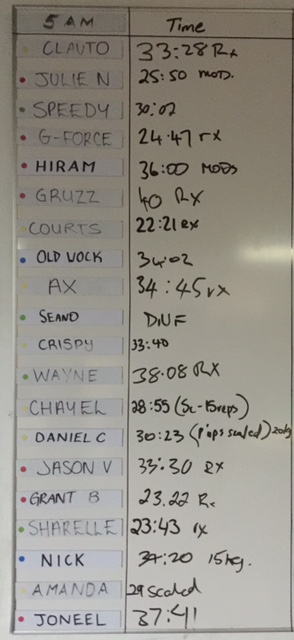 5 AM Time
CLAUTO 33:28 Rx
JULIE N 25:50 MODS.
SPEEDY 30:02
G-FORCE 24:47 rx
HIRAM 36:00 MODS
GRUZZ 40 RX
COURTS 22:21 RX
OLD VOCK 34:02
AX 34:45 rx
SEAND DNF
CRISPY 33:40
WAYNE 38.08 RX
CHAYEL 28:55 (Sc-15reps)
DANIEL C 30:23 (P'ups scaled) 20kg
JASON V 33:30 RX
GRANT B 23.22 Rx
SHARELLE 23:43 rx
NICK 34:20 15kg.
AMANDA 29 scaled
JONEEL 37:41